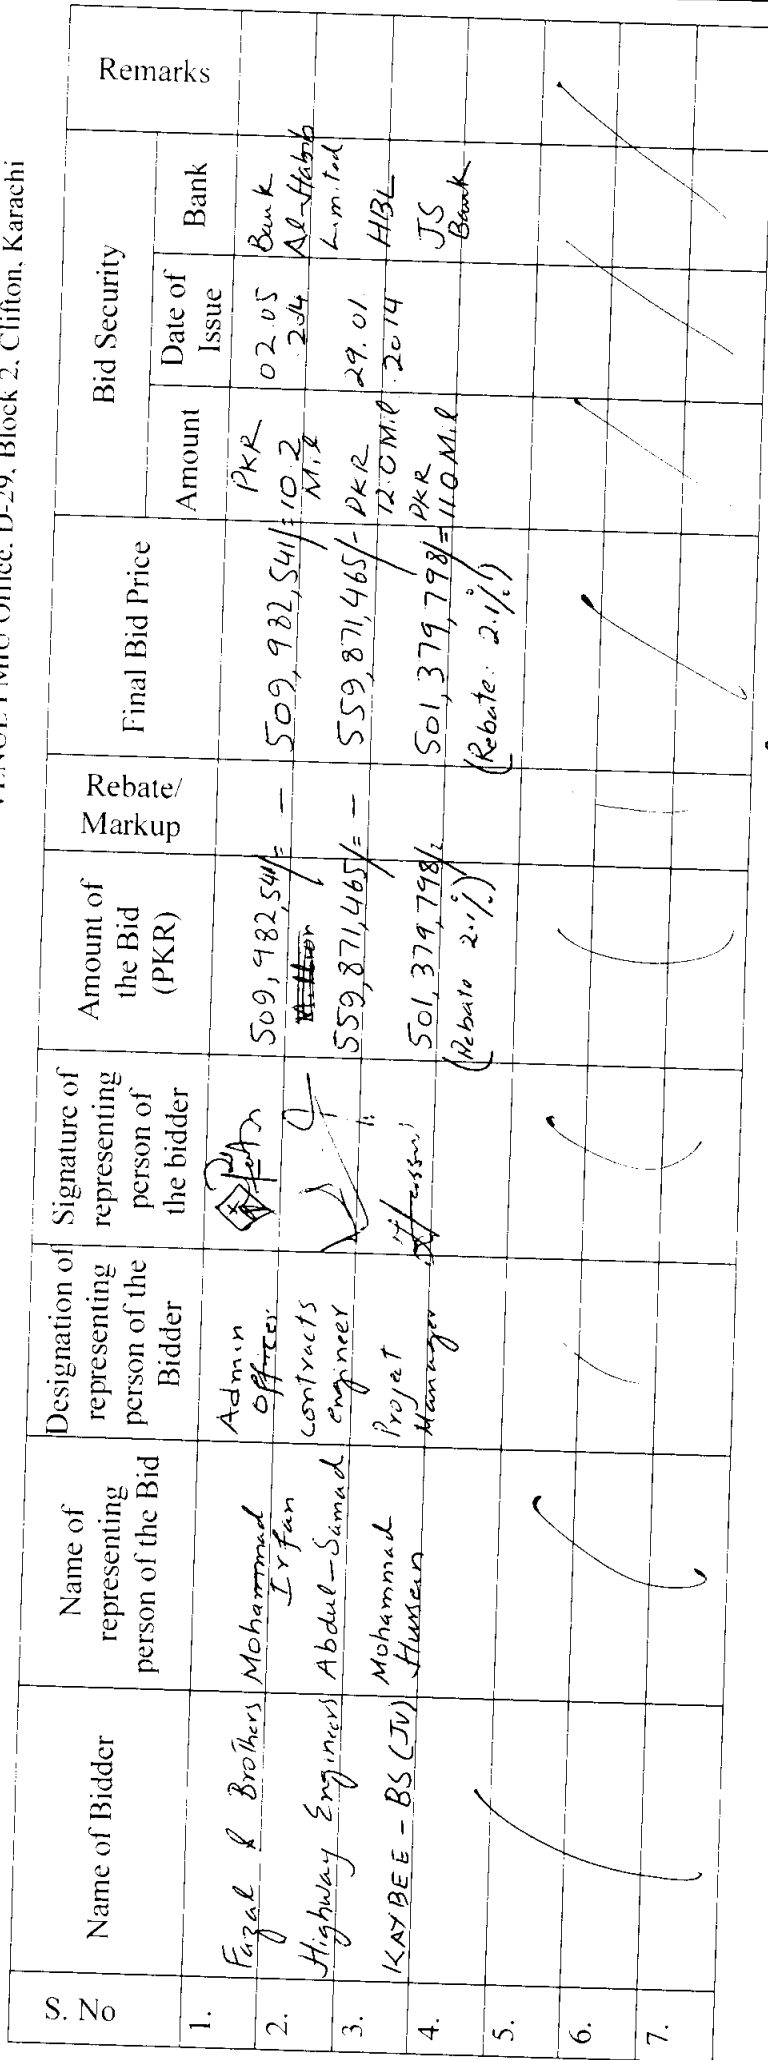 Office. D-29, Block 2, Clifton, Karachi
S. No | Name of Bidder | Name of representing person of the Bid | Designation of representing person of the Bidder | Signature of representing person of the bidder | Amount of the Bid (PKR) | Rebate/ Markup | Final Bid Price | Bid Security | Remarks
Amount | Date of Issue | Bank
1. | Fazal & Brothers | Mohammad Irfan | Admin Officer | 509,982,541/= | – | 509,982,541/= | PKR 10.2 Mil | 02.05 2014 | Bank Al-Habib Limited
2. | Highway Engineers | Abdul-Samad | contracts engineer | 559,871,465/= | – | 559,871,465/- | PKR 12.0 Mil | 29.01. 2014 | HBL
3. | KAYBEE - BS (JV) | Mohammad Hussain | Project Manager | 501,379,798/= (Rebate 2.1%) | 501,379,798/= (Rebate: 2.1%) | PKR 11.0 Mil | JS Bank
4.
5.
6.
7.